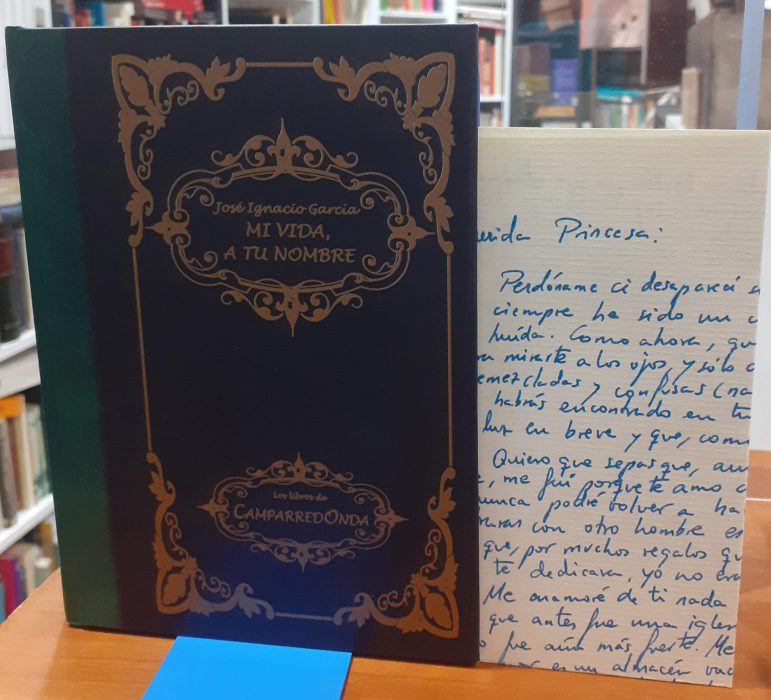 José Ignacio García
MI VIDA,
A TU NOMBRE
Los libros de
CAMPARREDONDA
erida Princesa:
Perdóname ci desaparecí
ciempre ha sido un
huída. Como ahora, qu
mirarte a los ojos, y sólo
emezcladas y confusas (na
habrás encontrado en tu
luz en breve y que, com
Quiero que sepas que, aun
, me fuí porque te amo
nunca podré volver a ha
raras con otro hombre es
que, por muchos regalos qu
te dedicara, yo no er
Me enamoré de ti nada
que antes fue una igles
fue aún más fuerte. Me
es un almacén vac